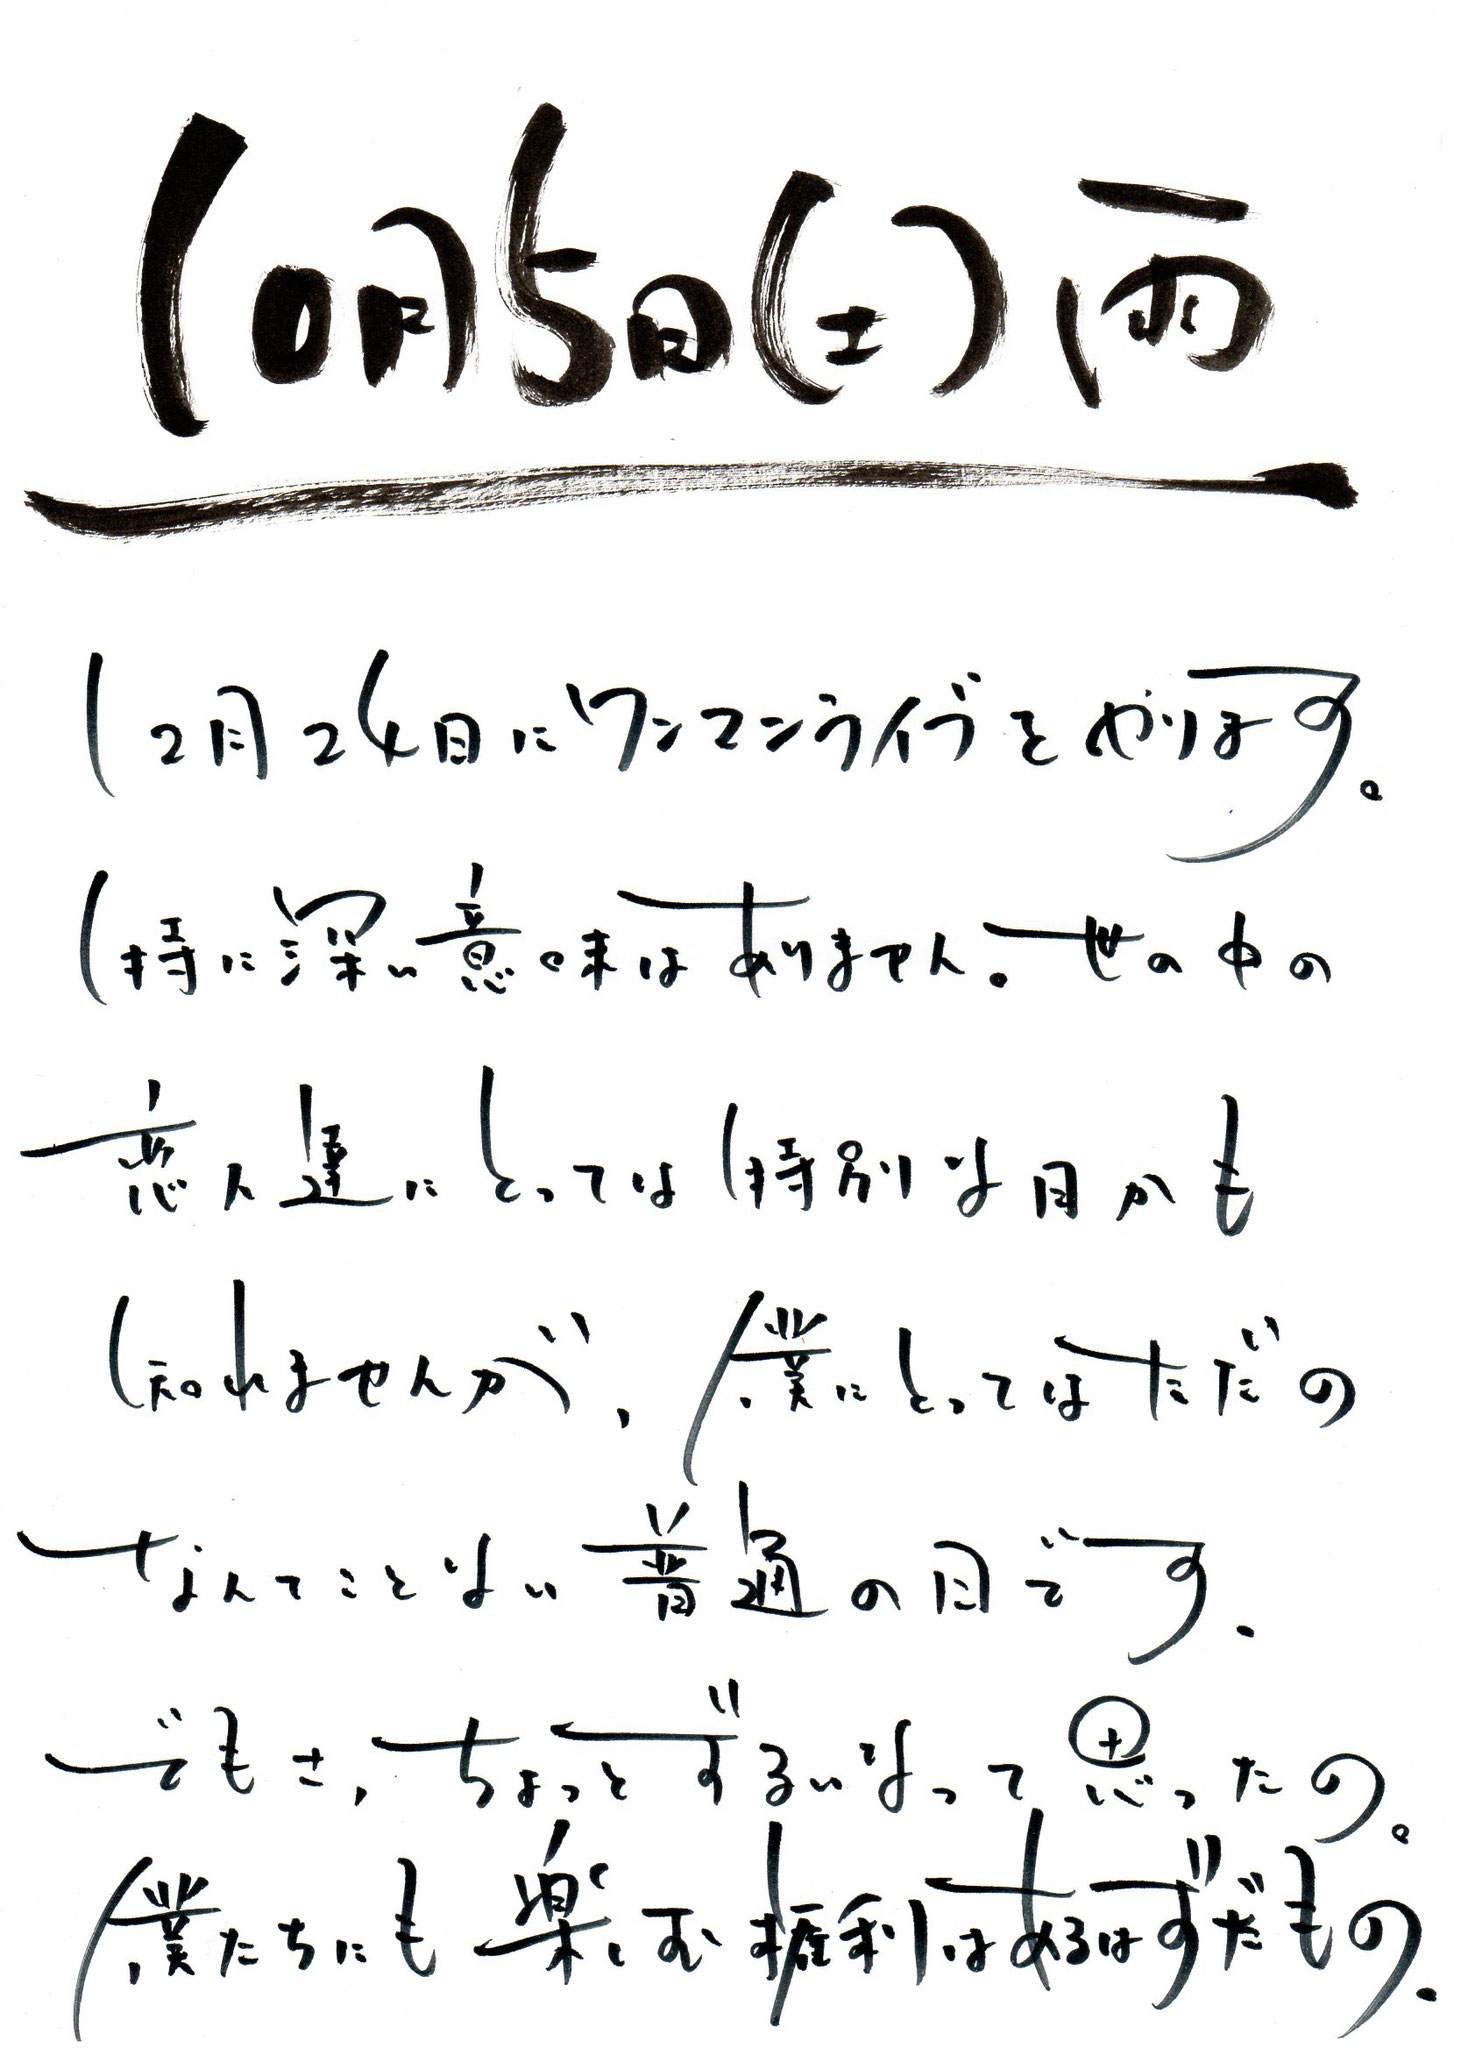 10月5日(土)雨
12月24日にワンマンライブをやります。
特に深い意味はありません。世の中の
恋人達にとっては特別な日かも
知れませんが、僕にとってはただの
なんてことない普通の日です.
でもさ,ちょっとずるいなって思ったの。
僕たちにも楽しむ権利はあるはずだもの.